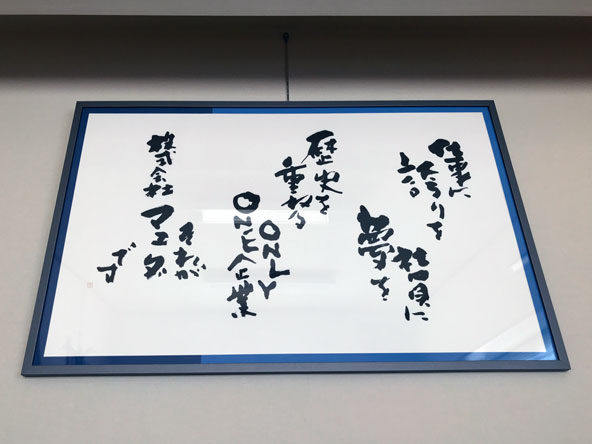 仕事に
誇りを
社員に
夢を
歴史を
重ねる
ONLY
ONE企業
株式会社
マエダ
それが
です